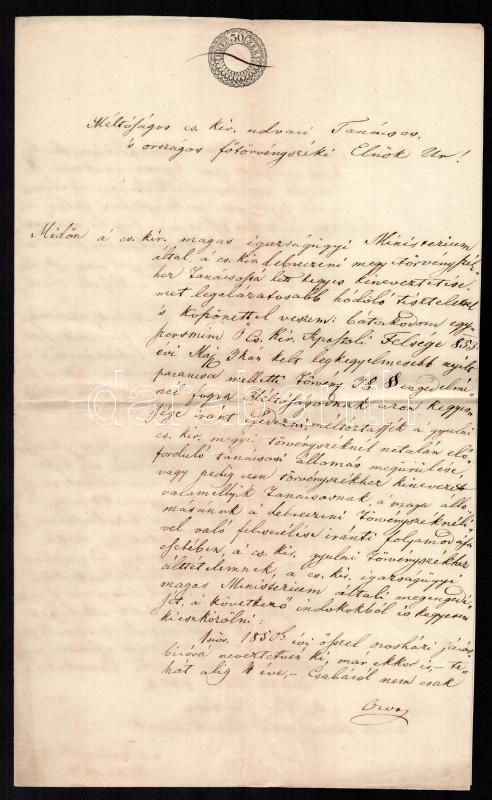 30
Méltóságos cs. kir. udvari Tanácsos,
s országos főtörvényszéki Elnök Ur!
Midőn a cs. kir. magas igazságügyi Ministerium
által, a cs. kir. debreczeni megy. törvényszék
hez Tanácsossá lett kegyes kineveztetése
met legalázatosabb hódoló tisztelettel
s köszönettel veszem: bátorkodom egy
persmind Ő Cs. Kir. Apostoli Felsége 853
évi Máj. kelt legkegyelmesebb nyilt
parancsa melletti törvény 78 § engedelmé
nél fogva Méltóságodnak azon kegyes
sége iránt esezni, méltóztassék a gyulai
cs. kir. megyei törvényszéknél netalán elő
forduló tanácsosi állomás megürülése
vagy pedig ezen törvényszékhez kinevezett
valamelyik Tanácsosnak, a maga állo
másunak a debreczeni törvényszéknéli
vel való felcserélése iránti folyamodása
esetében, a cs. kir. gyulai törvényszékhez
áttételemnek, a cs. kir. igazságügyi
magas Ministerium általi megengedé
sét, a következő indokokból is kegyesen
kieszközölni:
1ször. 1850 évi őszel orosházi járás
biróvá neveztetvén ki, már ekkor is, – te
hát alig 4 éve, – Csabáról nem csak
darabanth